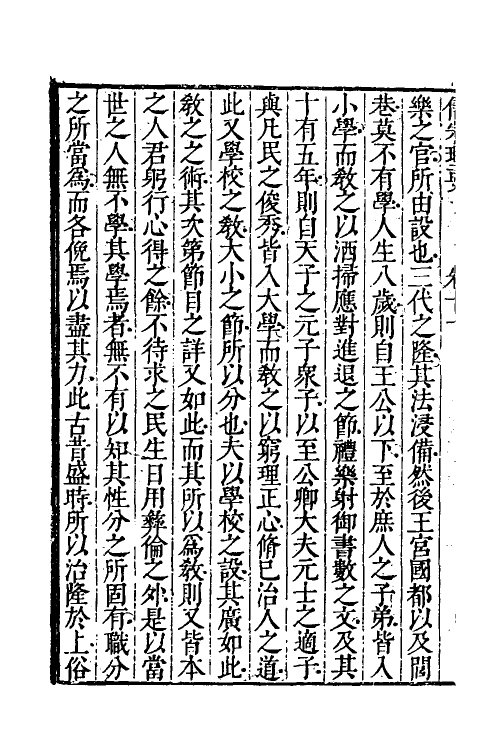 樂之官所由設也三代之隆其法浸備然後王宮國都以及閭
巷莫不有學人生八歲則自王公以下至於庶人之子弟皆入
小學而敎之以洒掃應對進退之節禮樂射御書數之文及其
十有五年則自天子之元子衆子以至公卿大夫元士之適子
與凡民之俊秀皆入大學而敎之以窮理正心脩己治人之道
此又學校之敎大小之節所以分也夫以學校之設其廣如此
敎之之術其次第節目之詳又如此而其所以爲敎則又皆本
之人君躬行心得之餘不待求之民生日用彝倫之外是以當
世之人無不學其學焉者無不有以知其性分之所固有職分
之所當爲而各俛焉以盡其力此古昔盛時所以治隆於上俗